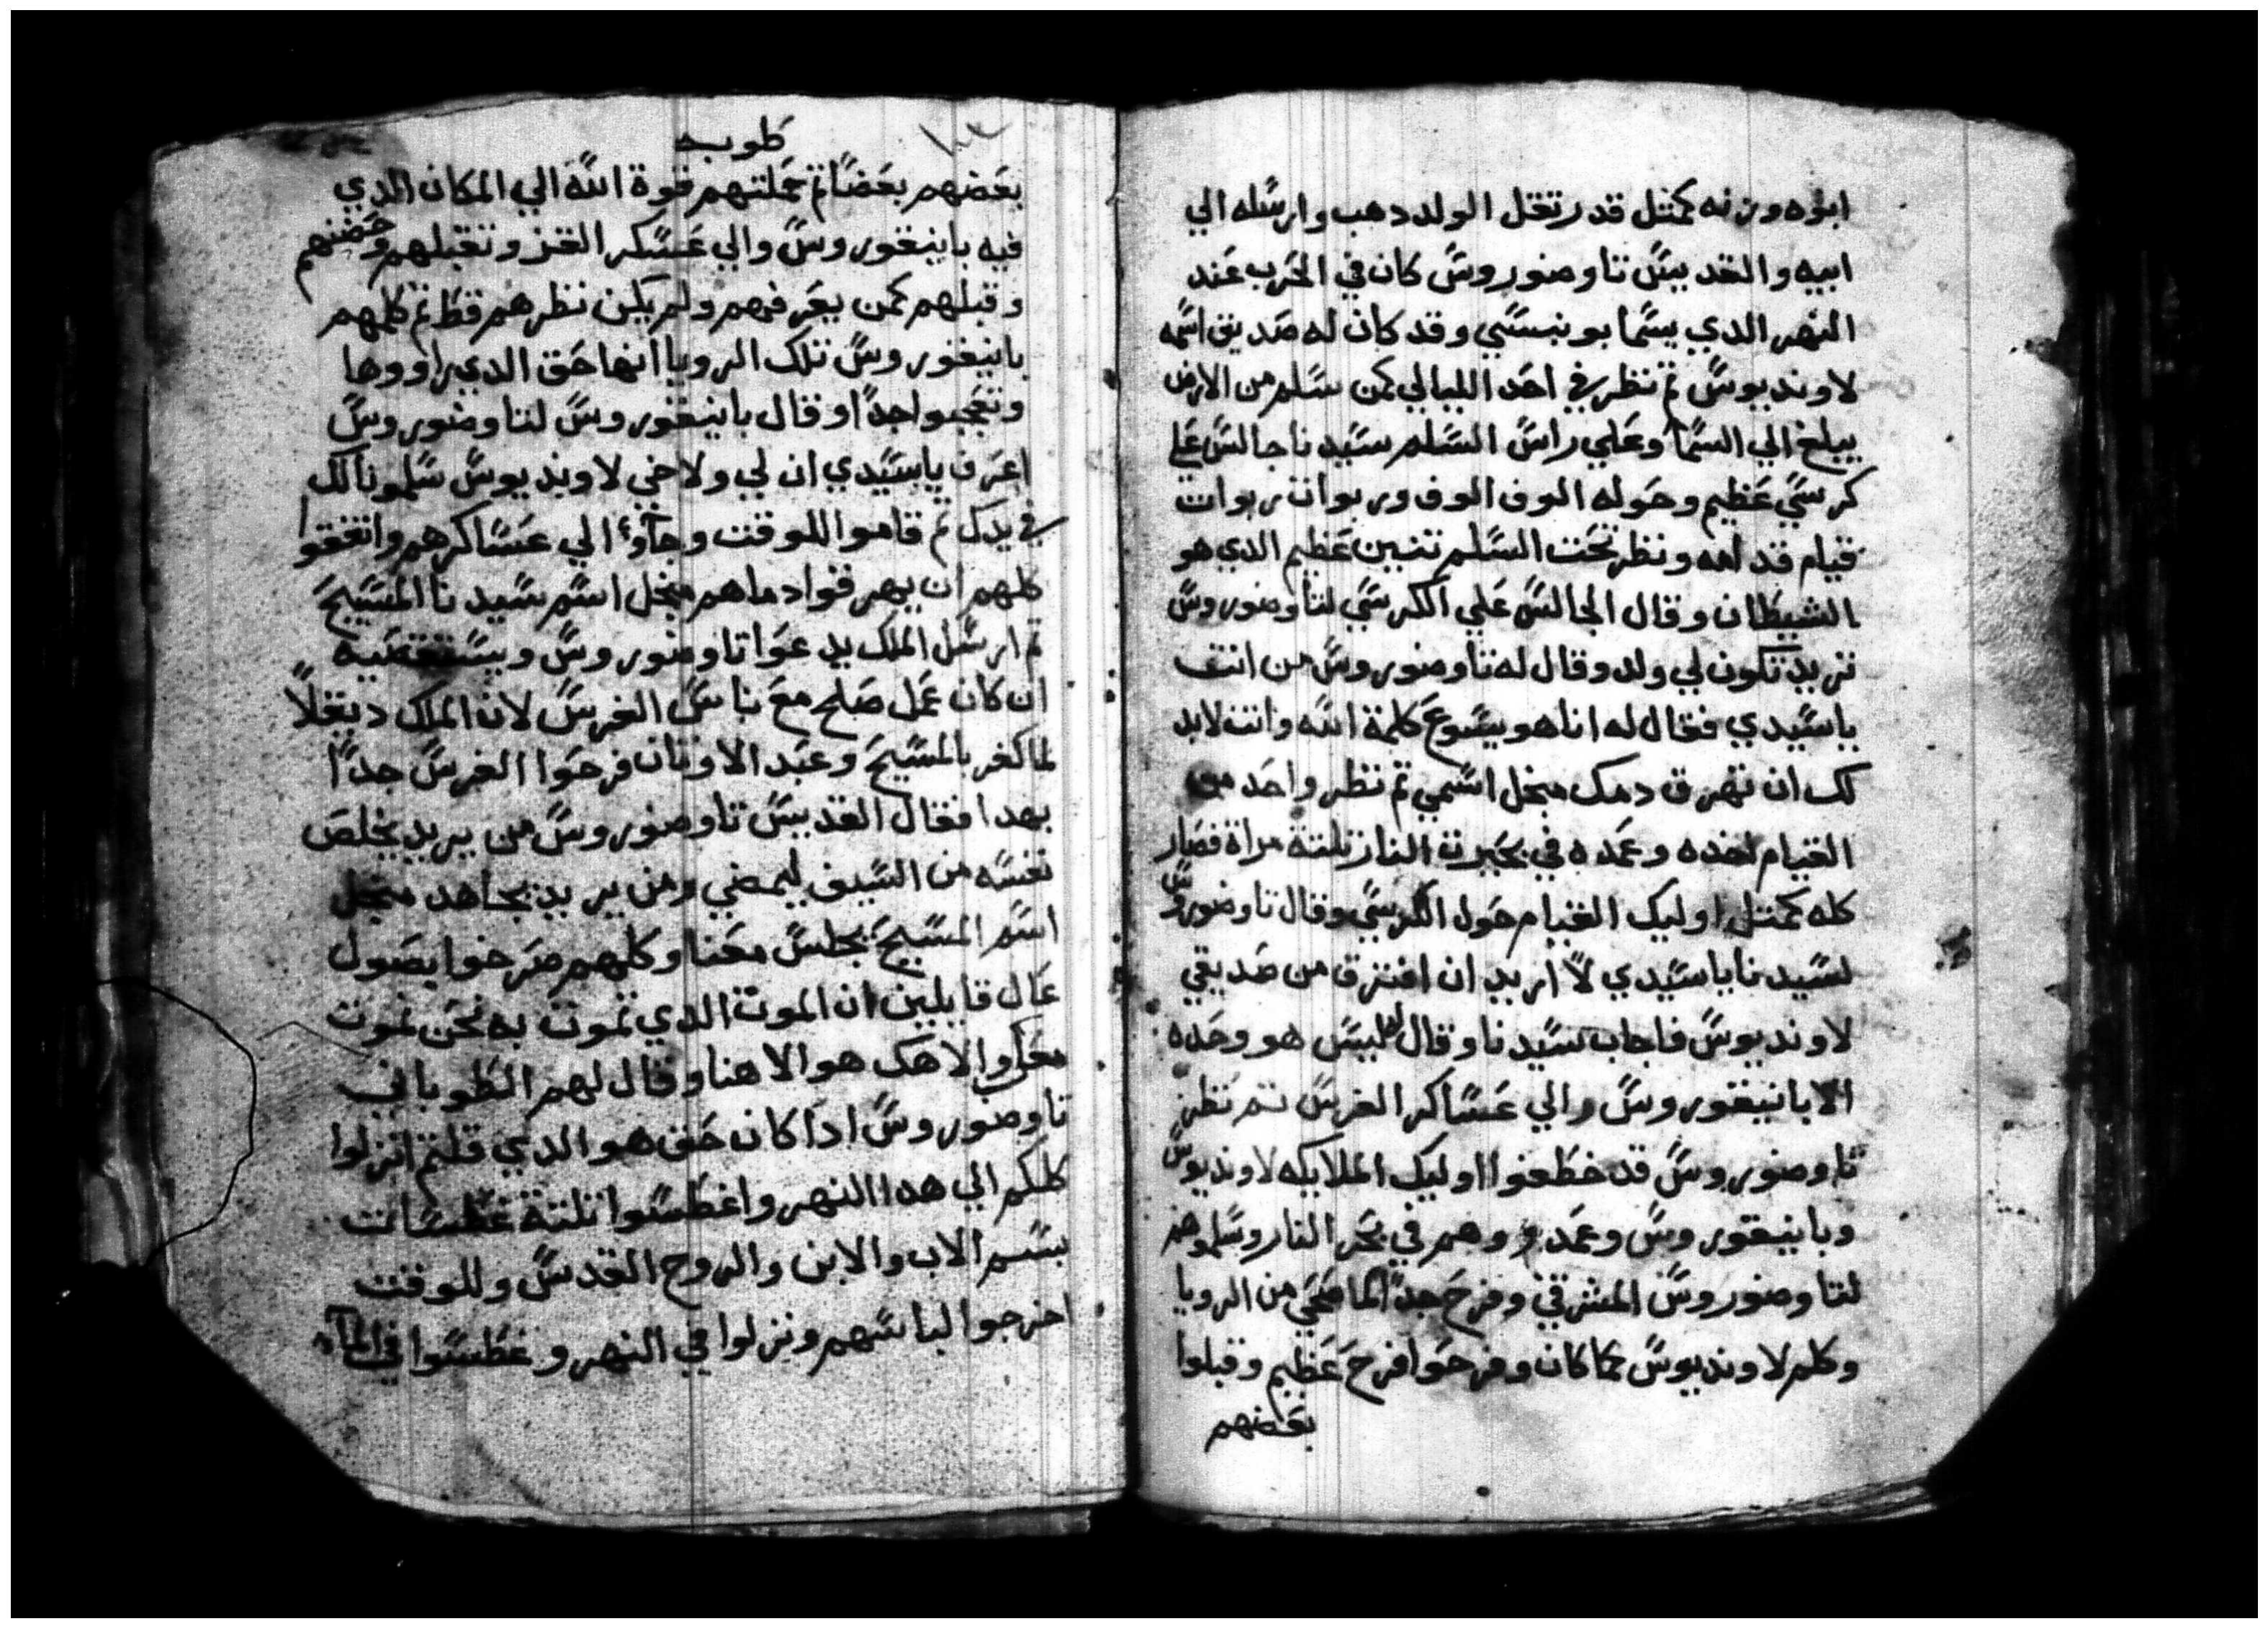 ابوه وزنه كمتل قدر تقل الولد دهب وارسله الي
ابيه والقديس تاوضوروس كان في الحرب عند
النهر الدي يسما بونسسي وقد كان له صديق اسمه
لاونديوس تم نظر في احد الليالي كمن سلم من الارض
يبلغ الي السما وعلي راس السلم سيدنا جالس علي
كرسي عظيم وحوله الوف الوف وربوات ربوات
قيام قدامه ونظر تحت السلم تنين عظيم الدي هو
الشيطان وقال الجالس علي الكرسي لتاوضوروس
تريد تكون لي ولد وقال له تاوضوروس من انت
ياسيدي فقال له انا هو يسوع كلمة الله وانت لابد
لك ان تهرق دمك منجل اسمي تم نظر واحد من
القيام اخده وعمده في بحيرت النار تلتة مراة فصار
كله كمتل اوليك القيام حول الكرسي وقال تاوضوروس
لسيدنا ياسيدي لا اريد ان افترق من صديقي
لاونديوس فاجاب سيدنا وقال له ليس هو وحده
الا بانيقوروس والي عساكر الفرس تم نظر
تاوضوروس قد خطفوا اوليك الملايكه لاونديوس
وبانيقوروس وعمدوهم في بحر النار وسلموهم
لتاوضوروس المشرقي وفرح جدا لما صحي من الرويا
وكلم لاونديوس بما كان وفرحوا فرح عظيم وقبلوا
بعضهم
طوبه
بعضهم بعضا تم حملتهم قوة الله الي المكان الدي
فيه بانيقوروس والي عسكر الفرس وتقبلهم وحضنهم
وقبلهم كمن يعرفهم ولم يكن نظرهم قط تم كلمهم
بانيقوروس تلك الرويا انها حق الدي راووها
وتعجبوا جدا وقال بانيقوروس لتاوضوروس
اعرف ياسيدي ان لي ولاخي لاونديوس سلمونا لك
في يدك تم قاموا للوقت وجاوا الي عساكرهم واتفقوا
كلهم ان يهرقوا دماهم منجل اسم سيدنا المسيح
تم ارسل الملك يدعوا تاوضوروس ويستقصيه
ان كان عمل صلح مع ناس الفرس لان الملك دبقلا
لما كفر بالمسيح وعبد الاوتان فرحوا الفرس جدا
بهدا فقال القديس تاوضوروس من يريد يخلص
نفسه من السيف ليمضي ومن يريد يجاهد منجل
اسم المسيح يجلس معنا وكلهم صرخوا بصوت
عال قايلين ان الموت الدي تموت به نحن نموت
معك والاهك هو الاهنا وقال لهم الطوباني
تاوضوروس ادا كان حق هو الدي قلتم انزلوا
كلكم الي هدا النهر واغطسوا تلتة غطسات
بسم الاب والابن والروح القدس وللوقت
اخرجوا لباسهم ونزلوا في النهر وغطسوا في الماء